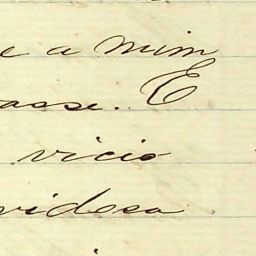 e a mim
asse. E
vicio
vidosa